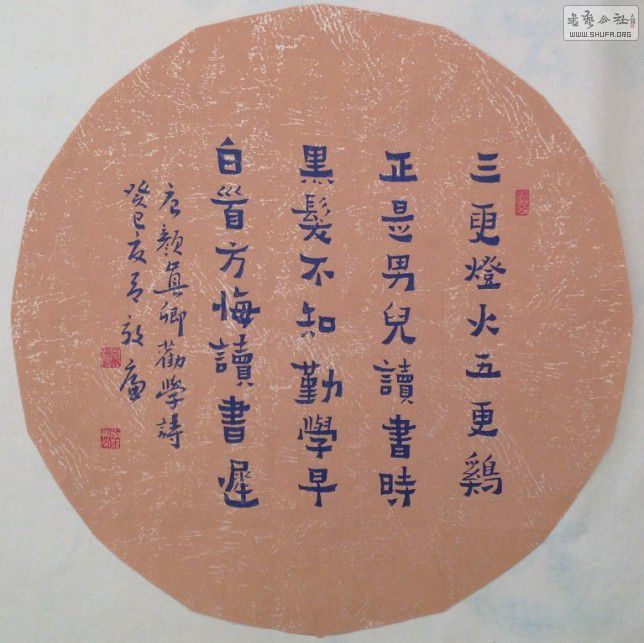 三更燈火五更鷄
正是男兒讀書時
黑髮不知勤學早
白首方悔讀書遲
唐顏真卿勸學詩
癸巳夏
WWW.SHUFA.ORG